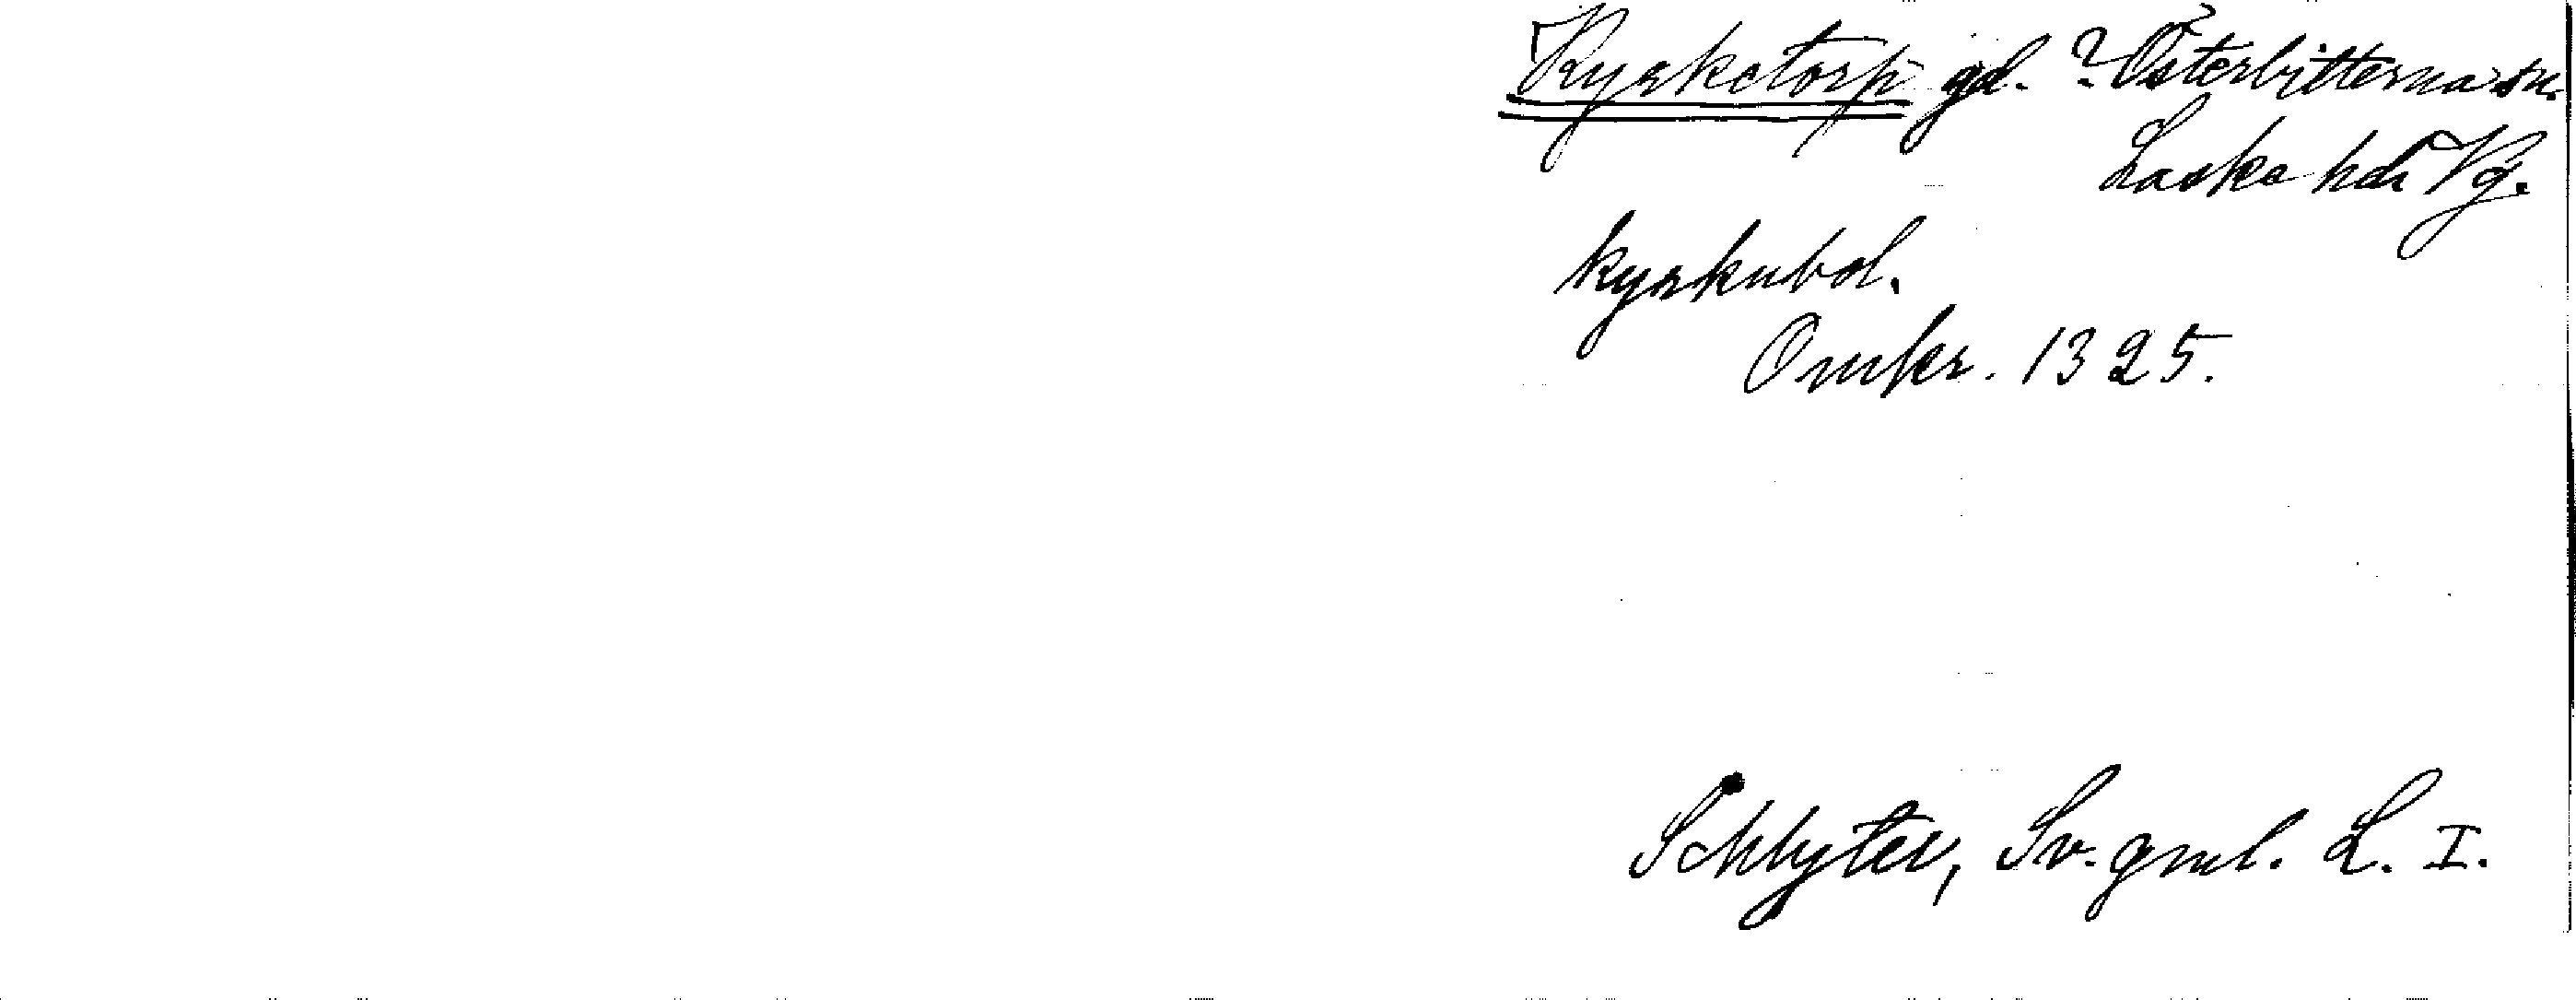 Kyrketorp gd. ? Österbitterna sn.
Laske hd Vg.
kyrkubol.
Omkr. 1325.
Schlyter, Sv. gml. L. I.